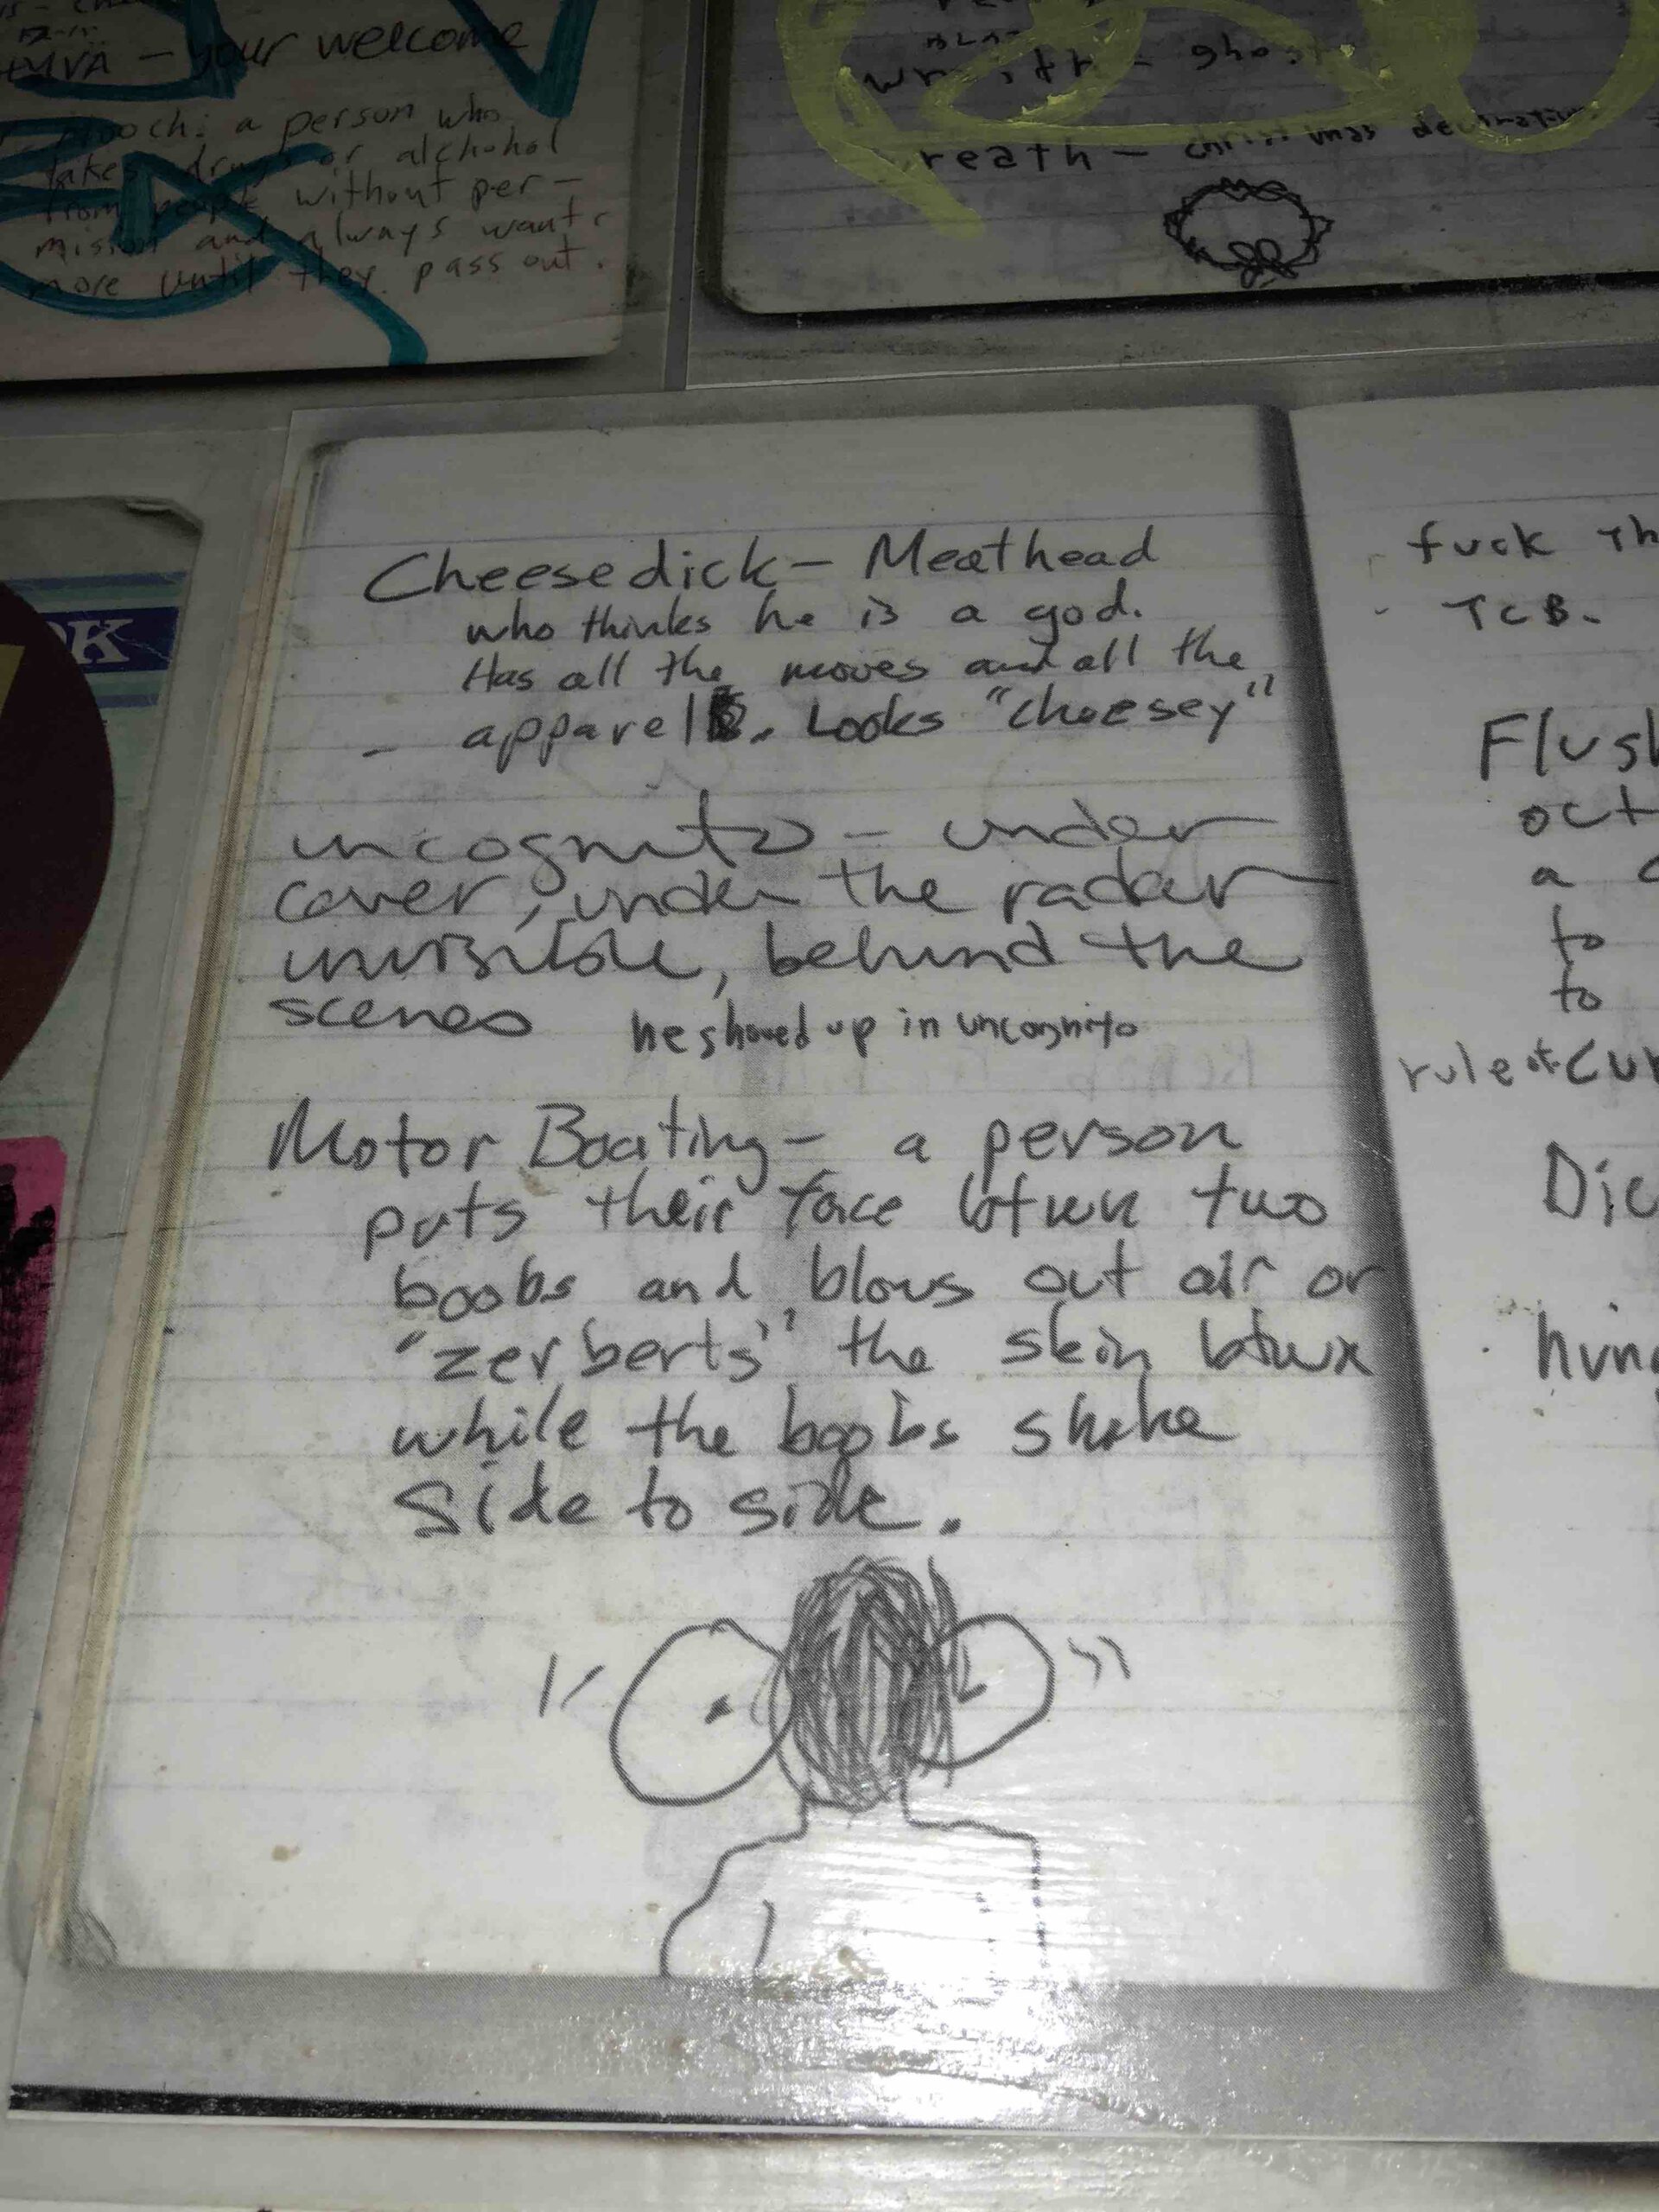 your welcome
ooch: a person who
takes drugs or alchohol
from people without per-
mision and always wants
more until they pass out.
- ghost
reath - christmas decoration
OK
Cheesedick - Meathead
who thinks he is a god.
Has all the moves and all the
- apparel. Looks "cheesey"
uncognito - under
cover, under the radar
invisible, behind the
scenes he showed up in uncognito
Motor Boating - a person
puts their face btwn two
boobs and blows out air or
"zerberts" the skin btwx
while the boobs shake
side to side.
fuck Th
TCB.
Flush
oct
a
to
to
rule of Cur
Dic
hung